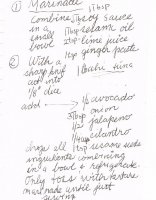 ① Marinade
combine 1 tbsp soy sauce
in a 1 tbsp sesame oil
small 1 tbsp lime juice
bowl 1 tsp ginger paste
② With a
sharp knife 1 lb ahi tuna
cut into
1/2" dice
add → 1/2 avocado
onion
jalapeno
cilantro
sesame seeds
ingredients combining
in a bowl & refrigerate.
Only toss
marinade until just
serving